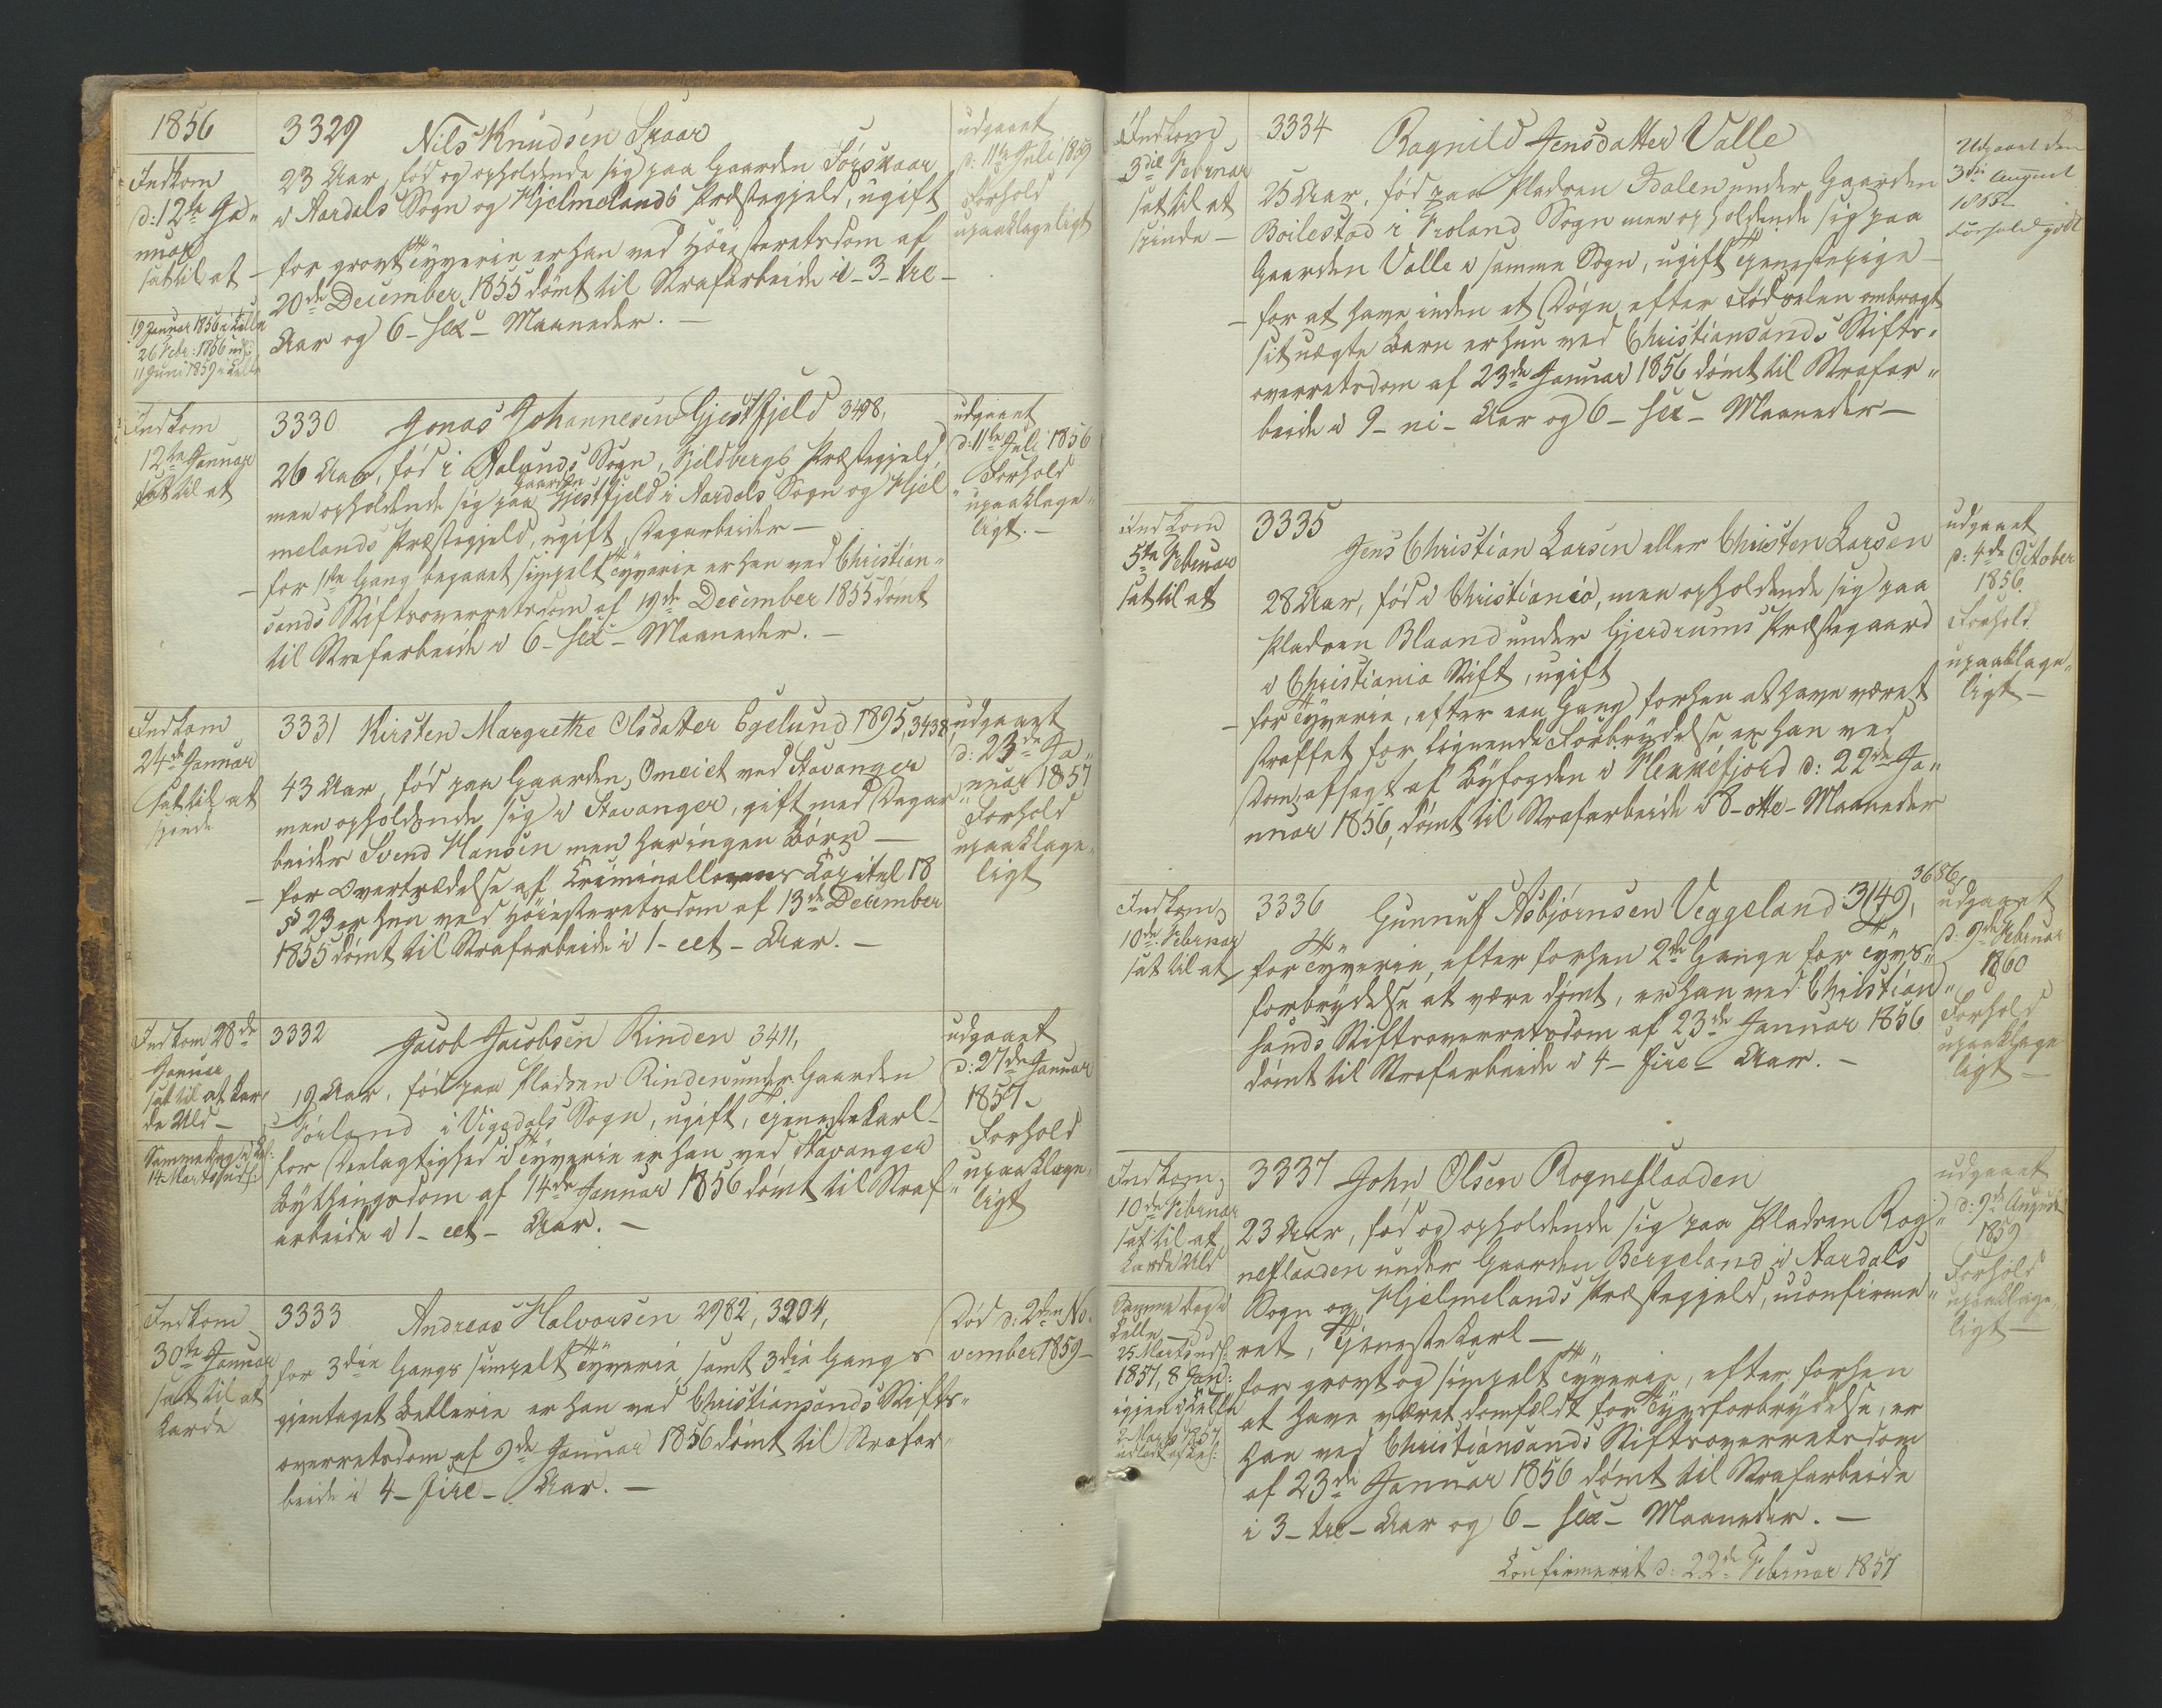 1856
Indkom
d: 12te Ja-
nuar
sat til at
19 Januar 1856 i Celle
26 Febr: 1856 ud
11 Juni 1859 i Celle
3329 Nils Knudsen Skaar
23 Aar, fød og opholdende sig paa Gaarden Sørskaar
i Aardals Sogn og Hjelmelands Præstegjeld, ugift
- for grovt Tyverie er han ved Høiesteretsdom af
20de December 1855 dømt til Strafarbeide i - 3 - tre -
Aar og 6 - sex - Maaneder. -
udgaaet
d: 11te Juli 1859
Forhold
upaaklageligt
Indkom
12te Januar
sat til at
3330 Jonas Johannesen Gjestfjeld 3498,
26 Aar, fød i Aalunds Sogn, Fjeldbergs Præstegjeld,
men opholdende sig paa Gaarden Gjestfjeld i Aardals Sogn og Hjel-
melands Præstegjeld, ugift, Dagarbeider -
- for 1ste Gang begaaet simpelt Tyverie er han ved Christian-
sands Stiftsoverretsdom af 19de December 1855 dømt
til Strafarbeide i 6 - sex - Maaneder. -
udgaaet
d: 11te Juli 1856
Forhold
upaaklage-
ligt. -
Indkom
24de Januar
sat til at
spinde
3331 Kirsten Margrethe Olsdatter Egelund 1895, 3438,
43 Aar, fød paa Gaarden Omeiet ved Stavanger
men opholdende sig i Stavanger, gift med Dagar-
beider Svend Hansen men har ingen Børn -
- for Overtrædelse af Criminallovens Capitel 18
§ 23 er hun ved Høiesteretsdom af 13de December
1855 dømt til Strafarbeide i 1 - eet - Aar. -
udgaaet
d: 23de Ja-
nuar 1857
Forhold
upaaklage-
ligt
Indkom 28de
Januar
sat til at kar-
de Uld -
Samme dag i Cel:
14 Marts ud:
3332 Jacob Jacobsen Rinden 3411,
19 Aar, fød paa Pladsen Rinden under Gaarden
Sørland i Vigedals Sogn, ugift, Tjenestekarl -
for Deelagtighed i Tyverie er han ved Stavanger
Bythingsdom af 14de Januar 1856 dømt til Straf-
arbeide i 1 - eet - Aar. -
udgaaet
d: 27de Januar
1857.
Forhold
upaaklage-
ligt
Indkom
30te Januar
sat til at
karde
3333 Andreas Halvorsen 2982, 3204,
for 3die Gangs simpelt Tyverie samt 3die Gangs
gjentaget Betlerie er han ved Christiansands Stifts-
overretsdom af 9de Januar 1856 dømt til Strafar-
beide i 4 - fire - Aar. -
Død d: 2den No-
vember 1859 -
Indkom
3die Februar
sat til at
spinde -
3334 Ragnild Jensdatter Valle
25 Aar, fød paa Pladsen Idalen under Gaarden
Boilestad i Froland Sogn men opholdende sig paa
Gaarden Valle i samme Sogn, ugift Tjenestepige -
- for at have inden et Døgn efter Fødselen ombragt
sit uægte Barn er hun ved Christiansands Stifts-
overretsdom af 23de Januar 1856 dømt til Strafar-
beide i 9 - ni - Aar og 6 - sex - Maaneder -
8
Udgaaet den
3die August
186
Forhold godt
Indkom
5te Februar
sat til at
3335
Jens Christian Larsen eller Christen Larsen
28 Aar, fød i Christiania, men opholdende sig paa
Pladsen Blaand under Gjerdrums Præstegaard
i Christiania Stift, ugift
- for Tyverie, efter een Gang forhen at have været
straffet for lignende Forbrydelse er han ved
Dom, afsagt af Byfogden i Flekkefjord d: 22de Ja-
nuar 1856, dømt til Strafarbeide i 8 - otte - Maaneder
udgaaet
d: 4de October
1856
Forhold
upaaklage-
ligt -
Indkom
10de Februar
sat til at
3336 Gunnuf Asbjørnsen Veggeland 3149, 3686,
for Tyverie, efter forhen 2de Gange for Tyvs-
forbrydelse at være dømt, er han ved Christian-
sands Stiftsoverretsdom af 23de Januar 1856
dømt til Strafarbeide i 4 - fire - Aar. -
udgaaet
d: 9de Februar
1860
Forhold
upaaklage
ligt -
Indkom
10de Februar
sat til at
karde Uld
Samme dag i
Celle -
25 Marts ud:
1857, 8 Jan:
igjen i Celle
2 Marts 1857
udladt af Cel:
3337 John Olsen Rogneflaaden
23 Aar, fød og opholdende sig paa Pladsen Rog-
neflaaden under Gaarden Bergeland i Aardals
Sogn og Hjelmelands Præstegjeld, uconfirme-
ret, Tjenestekarl -
for grovt og simpelt Tyverie, efter forhen
at have været domfældt for Tyvsforbrydelse, er
han ved Christiansands Stiftsoverretsdom
af 23de Januar 1856 dømt til Strafarbeide
i 3 - tre - Aar og 6 - sex - Maaneder. -
Confirmeret d: 22de Februar 1857
udgaaet
d: 9de August
1859
Forhold
upaaklage-
ligt -